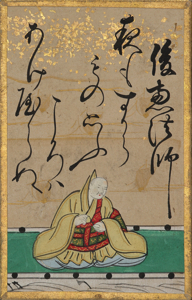 俊恵法師
夜もすから
もの思ふ
ころハ
あけやらぬ